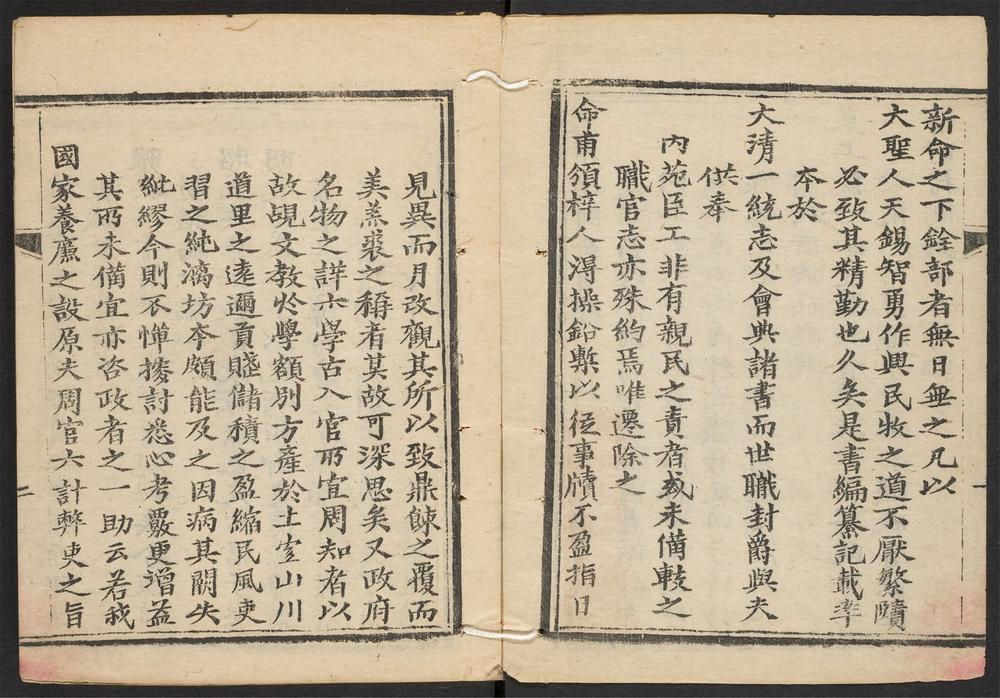 新命之下銓部者無日無之凡以
大聖人天錫智勇作興民牧之道不厭繁賾
必致其精勤也久矣是書編纂記載率
本於
大清一統志及會典諸書而世職封爵與夫
供奉
內苑臣工非有親民之責者或未備載之
職官志亦殊約焉唯遷除之
命甫頒梓人淂操鉛槧以從事牘不盈指日
見異而月改觀其所以致鼎餗之覆而
美羔裘之稱者某故可深思矣又政府
名物之詳六學古入官所宜周知者以
故覘文教於學額別方產於土宜山川
道里之遠邇貢賤儲積之盈縮民風吏
習之純漓坊本頗能及之因病其闕失
紕繆今則不憚搜討悉心考覈更增益
其所未備宜亦咨政者之一助云若我
國家養廉之設原夫周官六計弊吏之旨
二